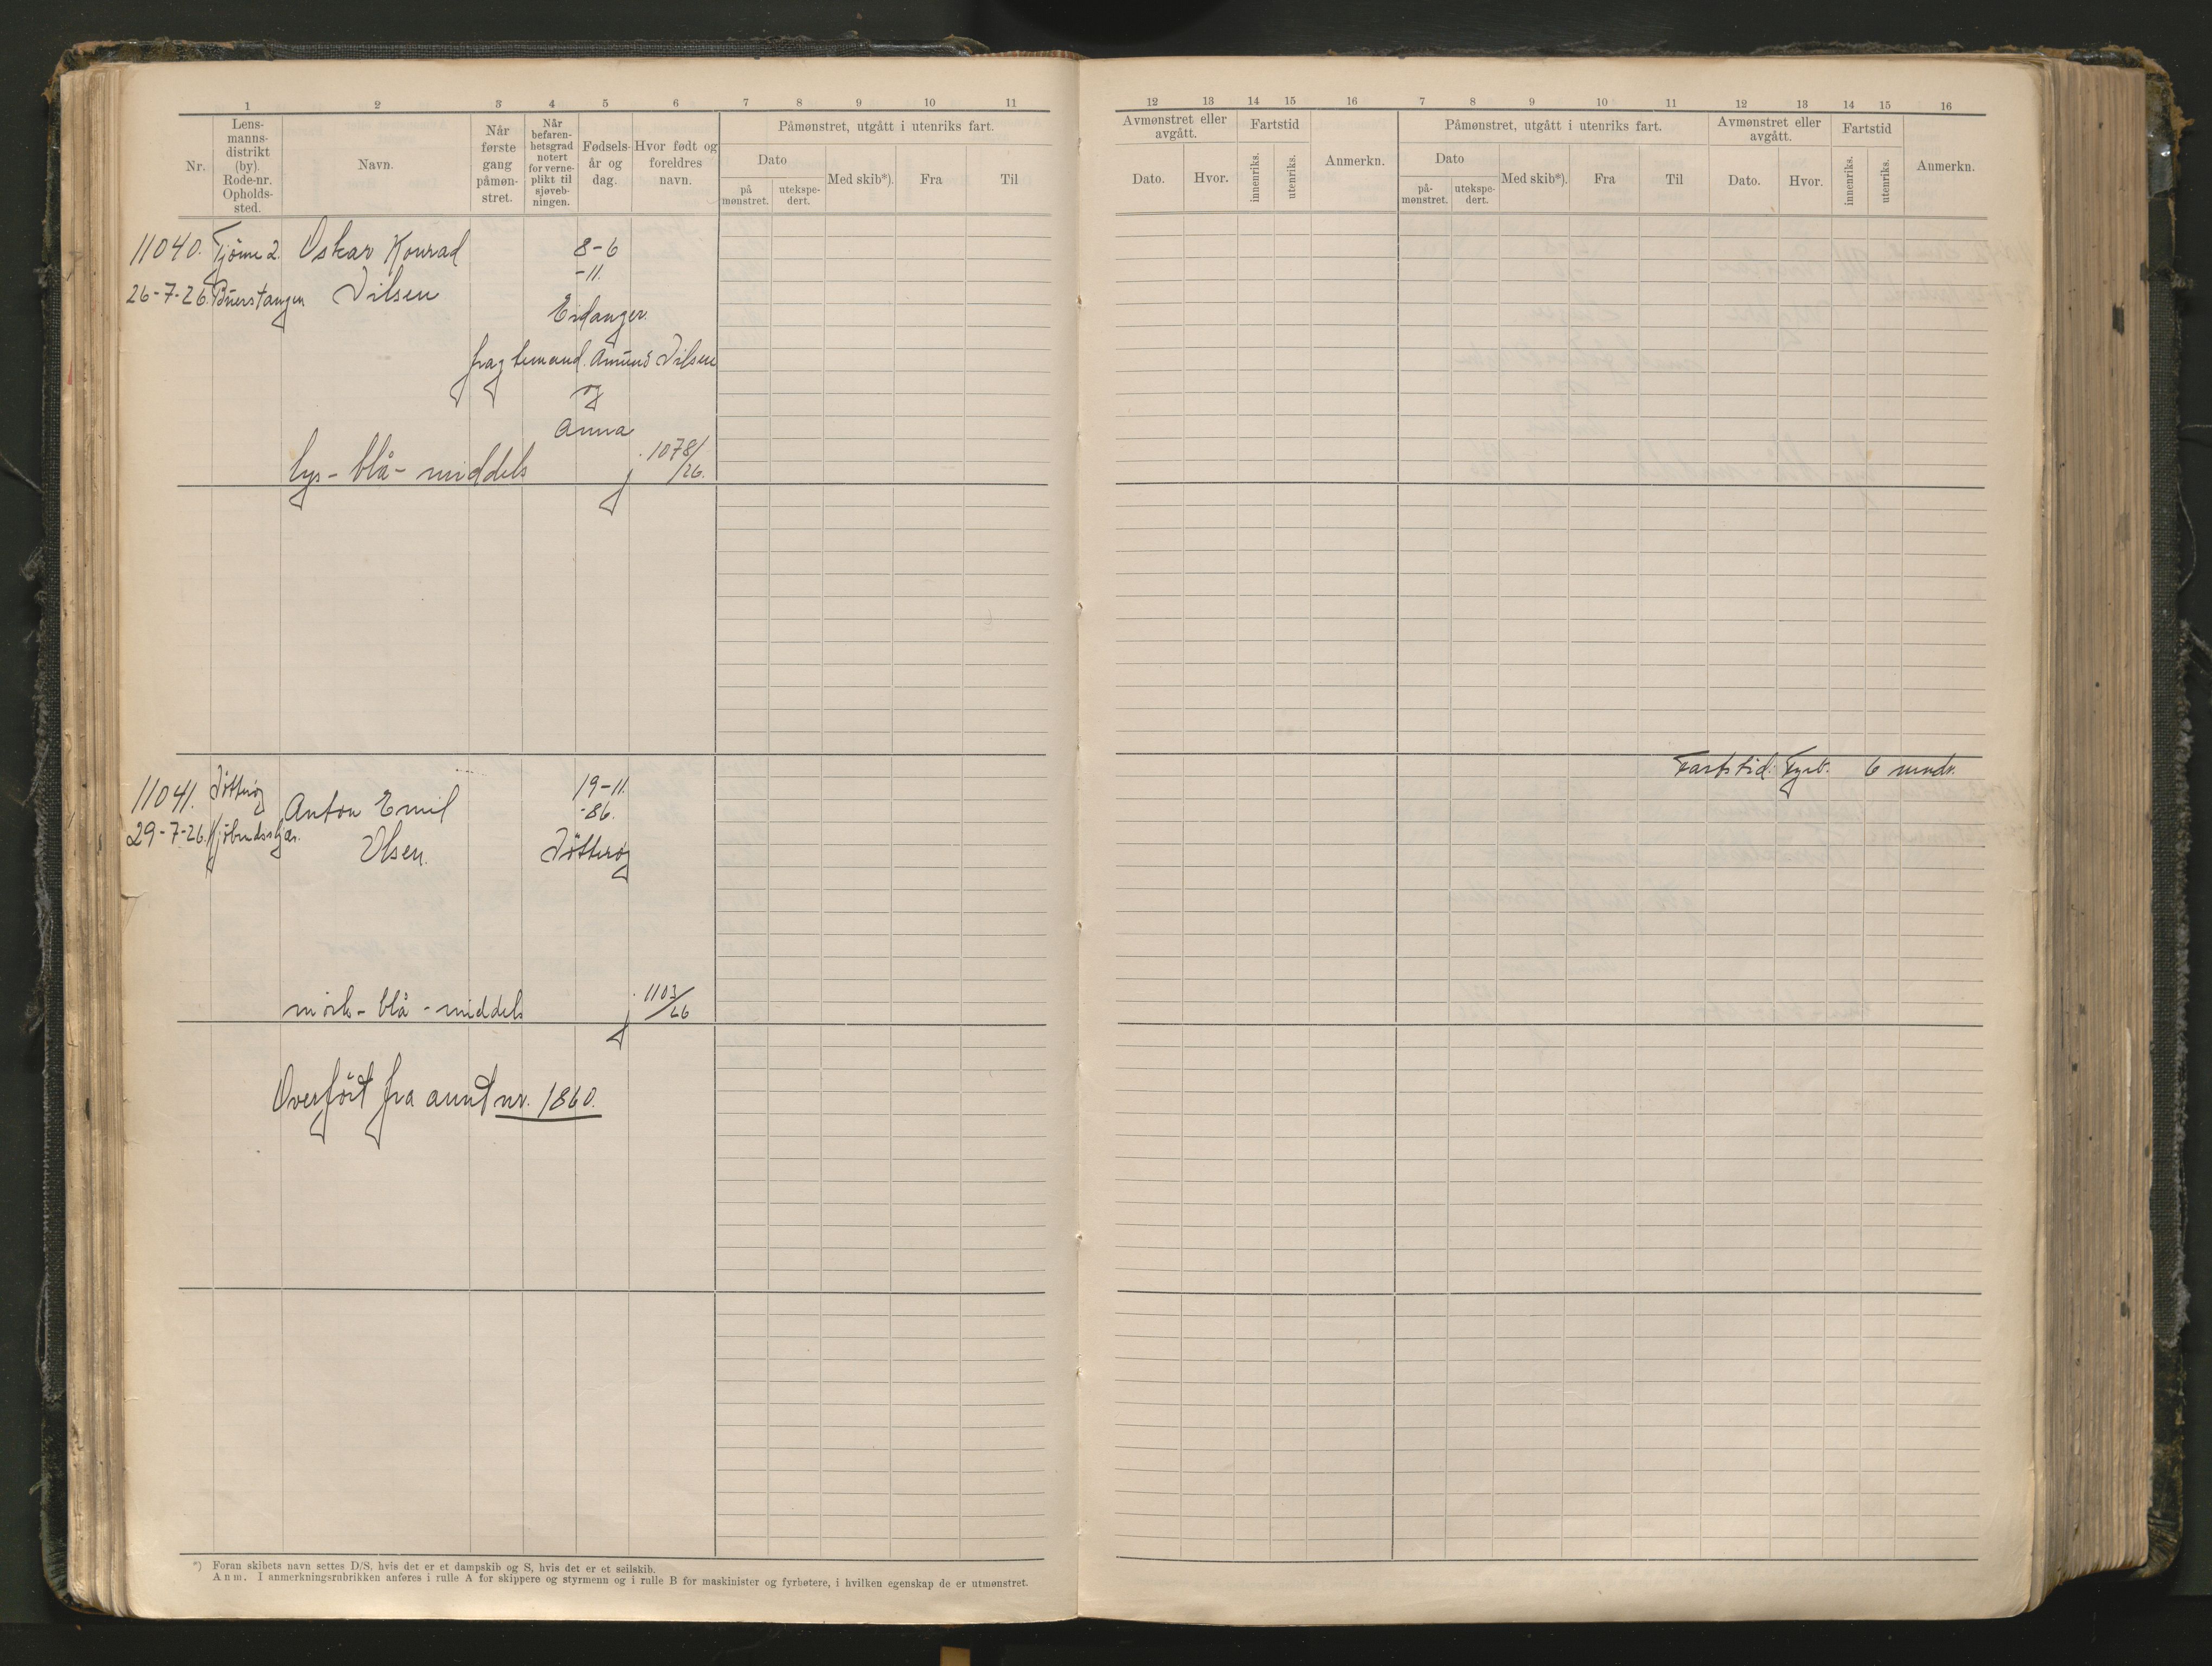 1 2 3 4 5 6 7 8 9 10 11
Nr.
Lens-
manns-
distrikt
(by).
Rode-nr.
Opholds-
sted.
Navn.
Når
første
gang
påmøn-
stret.
Når
befaren-
hetsgrad
notert
for verne-
plikt til
sjøveb-
ningen.
Fødsels-
år og
dag.
Hvor født og
foreldres
navn.
Påmønstret, utgått i utenriks fart.
Dato
på
mønstret.
utekspe-
dert.
Med skib*).
Fra
Til
11040. Tjöme 2. Oskar Konrad 8-6
-11.
26-7-26. Buerstangen Nilsen
Eidanger.
Amund Nilsen
og
Anna
lys - blå - middels j. 1078/26.
11041. Anton Emil 19-11.
-86.
29-7-26.
Olsen.
mörk - blå - middels j. 1103/26
Overfört fra annt nr. 1860.
*) Foran skibets navn settes D/S, hvis det er et dampskib og S, hvis det er et seilskib.
Anm. I anmerkningsrubrikken anføres i rulle A for skippere og styrmenn og i rulle B for maskinister og fyrbøtere, i hvilken egenskap de er utmønstret.
12 13 14 15 16 7 8 9 10 11 12 13 14 15 16
Avmønstret eller
avgått.
Dato.
Hvor.
Fartstid
innenriks.
utenriks.
Anmerkn.
Påmønstret, utgått i utenriks fart.
Dato
på-
mønstret.
utekspe-
dert.
Med skib*).
Fra
Til
Avmønstret eller
avgått.
Dato.
Hvor.
Fartstid
innenriks.
utenriks.
Anmerkn.
Fartstid: Fyrb. 6 mndr.